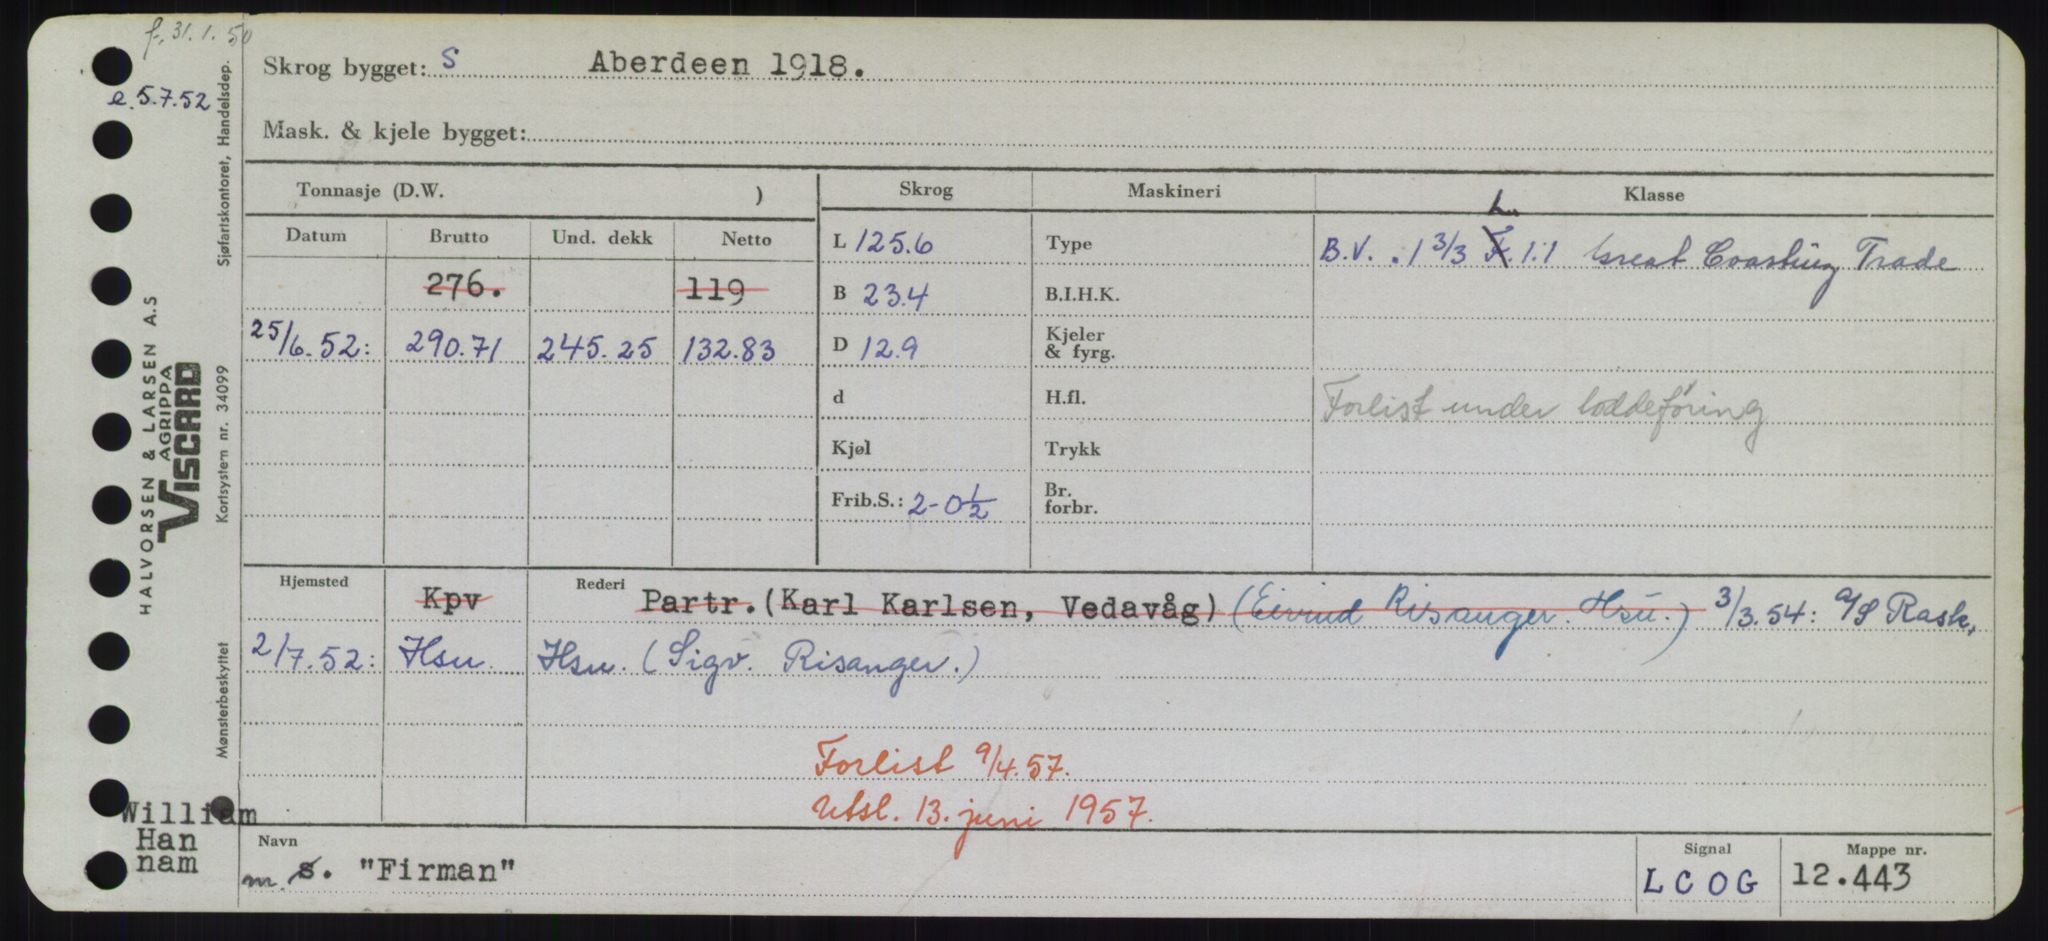 f. 31.1.50
e. 5.7.52
Skrog bygget: S Aberdeen 1918.
Mask. & kjele bygget:
Tonnasje (D.W. )
Skrog
Maskineri
Klasse
Datum Brutto Und. dekk Netto
276. 119
25/6.52: 290.71 245.25 132.83
L 125.6
B 23.4
D 12.9
d
Kjøl
Frib.S.: 2-0½
Type
B.I.H.K.
Kjeler & fyrg.
H.fl.
Trykk
Br. forbr.
L
B.V. .1 3/3 F. 1.1 Great Coasting Trade
Forlist under loddeføring
Hjemsted
Rederi
Kpv Partr.(Karl Karlsen, Vedavåg) (Eivind Risanger. Hsu.) 3/3.54: A/S Rask,
2/7.52: Hsu. Hsu. (Sigv. Risanger.)
Forlist 9/4.57.
Utsl. 13. juni 1957.
Navn
m s. "Firman"
Signal
LCOG
Mappe nr.
12.443
William
Han
nam
HALVORSEN & LARSEN A.S
AGRIPPA
VISCARD
Sjøfartskontoret, Handelsdep.
Kortsystem nr. 34099
Mønsterbeskyttet